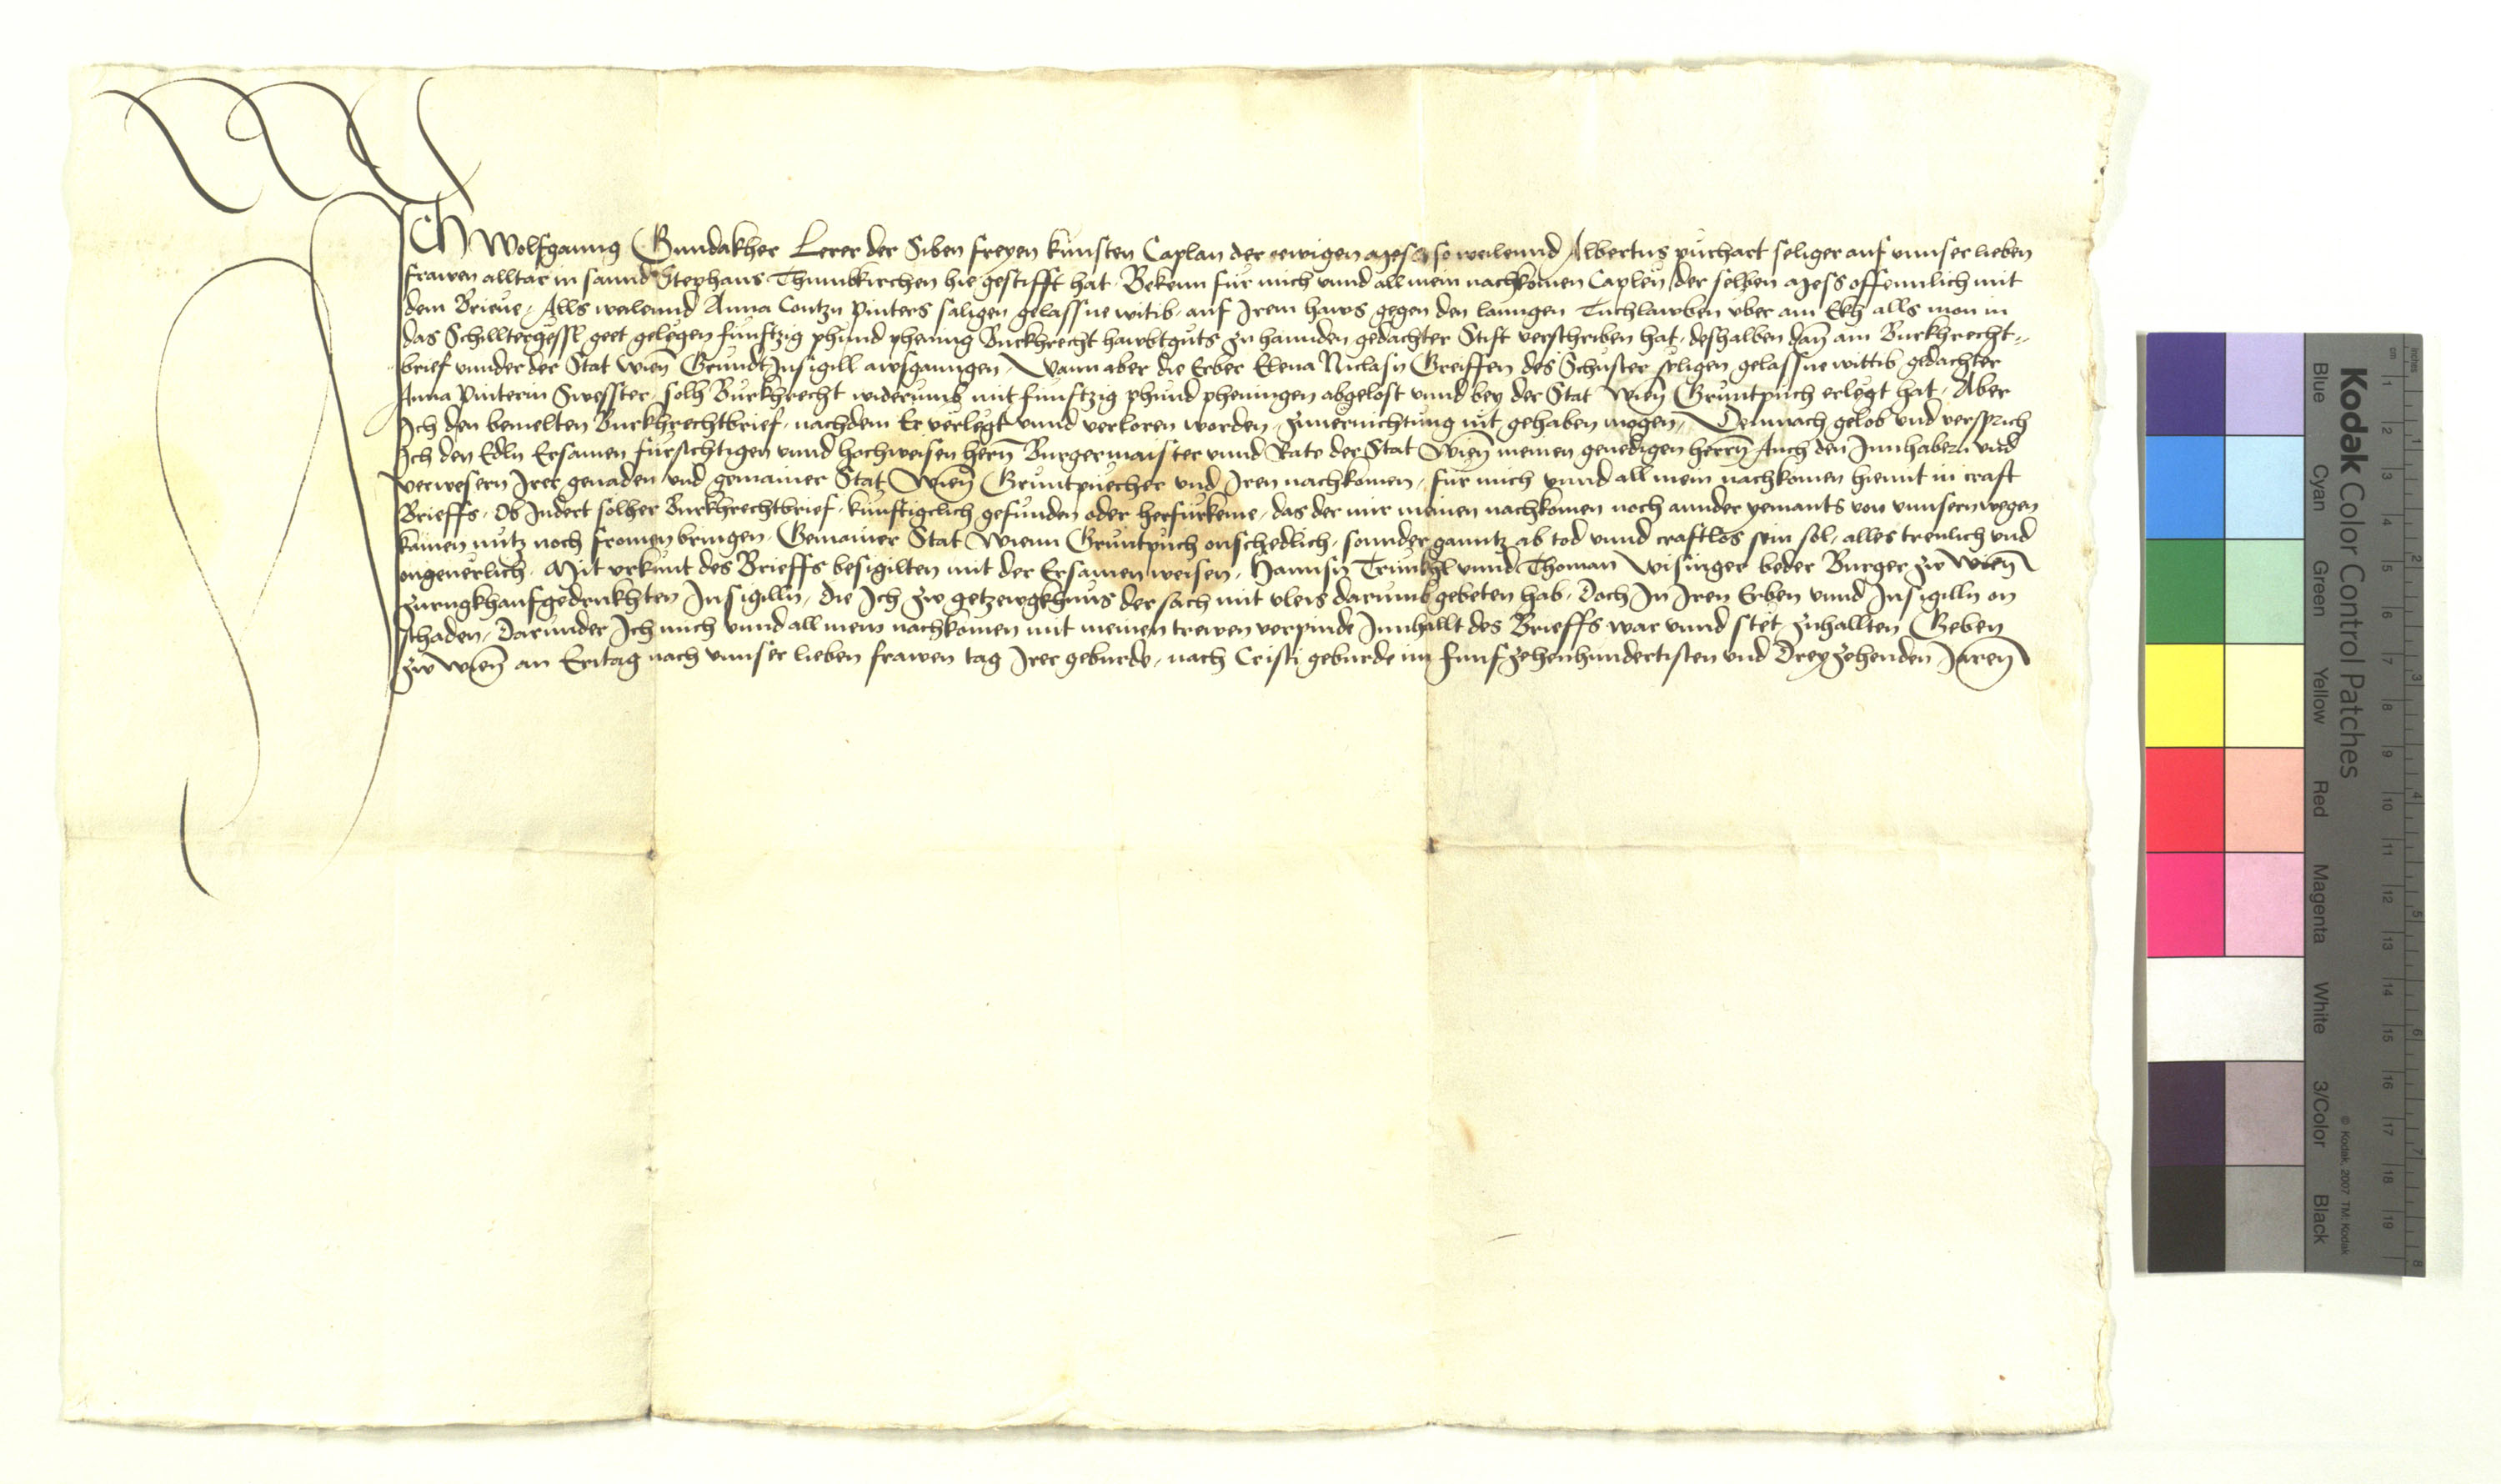 Ich Wolfganng Gundakher Lerer der Siben freyen kunsten Caplan der ewigen Mess so weilennd Albertus purchart seliger auf unnser lieben
frawen alltar in sannd Stephans Thumbkirchen hie gestifft hat. Bekenn fur mich unnd all mein nachkomen Caplen der selben Mess offennlich mit
dem Brieue, Alls weilennd Anna Contzn pinters saligen gelassne witib, auf Irem haws gegen den lanngen Tuchlawben uber am Ekh alls man in
das Schilltergessl geet gelegen funftzig phund phening Burkhrecht hawbtguts zu hannden gedachter Stift verschriben hat, deshalben dan ain Burkhrecht-
brief vnnder der Stat Wienn Grundt Insigill awsganngen, Wann aber die Erber Elena Niclasn Greiffen des Schuster seligen gelassne wittib gedachter
Anna Pinterin Swesster, solh Burkhrecht widerumb mit funftzig phund pheningen abgelost vnnd bey der Stat Wienn Gruntpuch erlegt hat, Aber
Ich den bemelten Burkhrechtbrief, nachdem Er verlegt vnnd verloren worden, zuuernichtung nit gehaben mogen, Demnach gelob vnd versprich
Ich den Edln Ersamen fursichtigen vnnd hochweisen herrn Burgermaister vnnd Rate der Stat Wienn meinen genedigen herrn Auch den Innhabern vnd
verwesern Irer genaden vnd gemainer Stat Wienn Gruntpuecher vnd Iren nachkomen, fur mich vnnd all mein nachkomen hiemit in craft
Brieffs, Ob Indert solher Burkhrechtbrief, kunftigclich gefunden oder herfurkeme, das der mir meinen nachkomen noch annder yemants von vnnsern wegen
kainen nutz noch fromen bringen, Gemainer Stat Wienn Gruntpuch onschedlich, sonnder ganntz ab tod vnnd craftlos sein sol, alles trewlich vnd
ongeuerlich, Mit vrkunt des Brieffs besigilten mit der Ersamen weisen, Hannsn Trunkhl vnnd Thoman Wisinger beder Burger zw Wienn
zurugkhaufgedrukhten Insigilln, die Ich zw getzewgkhnus der sach mit vleis darumb gebeten hab, Doch In Iren Erben vnnd Insigilln on
schaden, Darunder Ich mich vnnd all mein nachkomen mit meinen trewen verpinde Innhallt des Brieffs war vnnd stet zuhallten Geben
zw Wienn an Eritag nach vnnser lieben frawen tag Irer geburde, nach Cristi geburde im funfzehenhundertisten vnd Dreyzehenden Jaren
Kodak Color Control Patches
© Kodak, 2007 TM: Kodak
Blue
Cyan
Green
Yellow
Red
Magenta
White
3/Color
Black
cm 1 2 3 4 5 6 7 8 9 10 11 12 13 14 15 16 17 18 19
inches 1 2 3 4 5 6 7 8